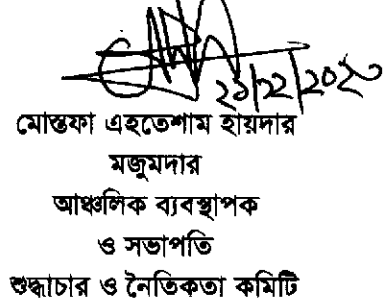 ২১/১২/২০২০
মোস্তফা এহতেশাম হায়দার
মজুমদার
আঞ্চলিক ব্যবস্থাপক
ও সভাপতি
শুদ্ধাচার ও নৈতিকতা কমিটি